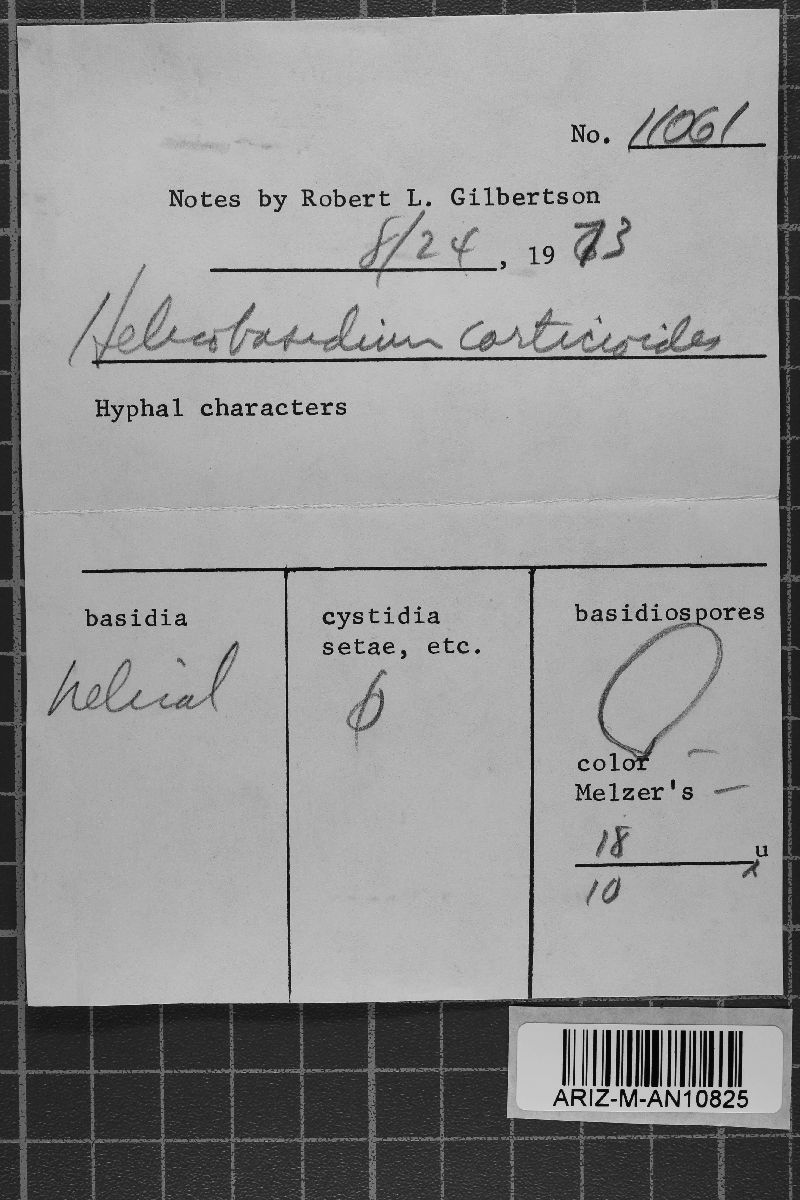 No. 11061
Notes by Robert L. Gilbertson
8/24, 1973
Helicobasidium corticioides
Hyphal characters
basidia
helical
cystidia
setae, etc.
φ
basidiospores
color —
Melzer's —
18 u
10
ARIZ-M-AN10825